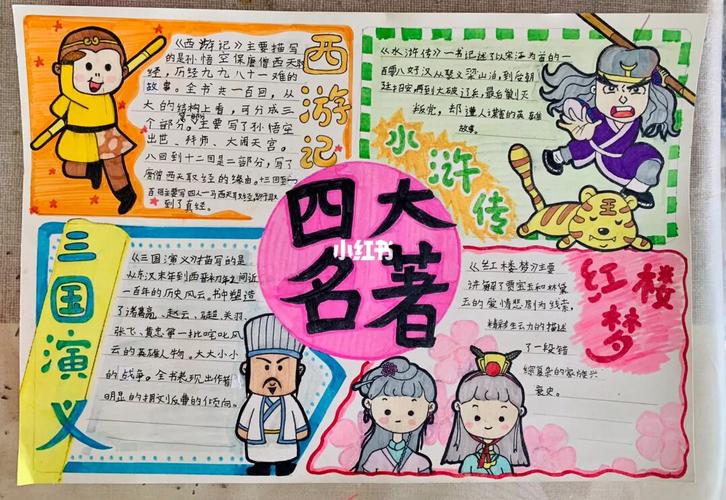 西游记
《西游记》主要描写
的是孙悟空保唐僧西天取
经，历经九九八十一难的
故事。全书共一百回，从
大的结构上看，可分成三
个部分。主要写了孙悟空
第一部分
出世、拜师、大闹天宫。
八回到十二回是二部分，写了
唐僧西天取经的缘由。十三回到一
百回主要写四人一马西天取经
到了真经。
水浒传
《水浒传》一书记述了以宋江为首的一
百零八好汉从聚义梁山泊，到反朝
廷招安，再到大破辽兵，最后剿灭
叛党，却遭人谋害的英雄
故事。
王
四大
名著
小红书
三国演义
《三国演义》描写的是
从东汉末年到西晋初年之间近
一百年的历史风云。书中塑造
了诸葛亮、赵云、关羽、
张飞、黄忠等一批叱咤风
云的英雄人物。大大小小
的战争。全书表现出作者
明显的拥刘反曹的倾向。
红楼梦
《红楼梦》主要
讲解了贾宝玉和林黛
玉的爱情悲剧为线索，
精彩生动的描述
了一段错
综复杂的家族兴
衰史。